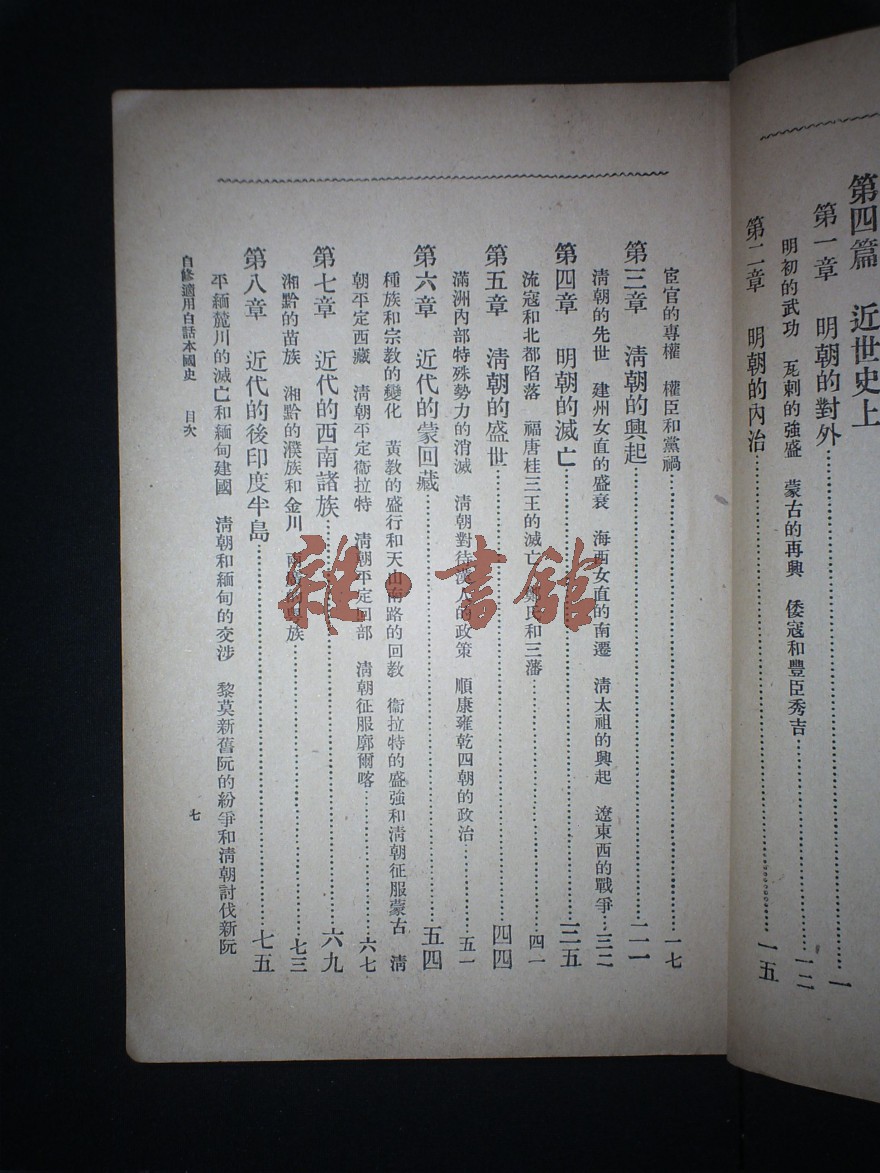 第四篇　近世史上
第一章　明朝的對外…………一
明初的武功　瓦剌的強盛　蒙古的再興　倭寇和豐臣秀吉…………一二
第二章　明朝的內治…………一五
宦官的專權　權臣和黨禍…………一七
第三章　淸朝的興起…………二一
淸朝的先世　建州女直的盛衰　海西女直的南遷　淸太祖的興起　遼東西的戰爭…三二
第四章　明朝的滅亡…………三五
流寇和北都陷落　福唐桂三王的滅亡　鄭氏和三藩…………四一
第五章　淸朝的盛世…………四四
滿洲內部特殊勢力的消滅　淸朝對待漢人的政策　順康雍乾四朝的政治…………五一
第六章　近代的蒙回藏…………五四
種族和宗教的變化　黃教的盛行和天山南路的回教　衞拉特的盛強和淸朝征服蒙古　淸
朝平定西藏　淸朝平定衞拉特　淸朝平定回部　淸朝征服廓爾喀…………六七
第七章　近代的西南諸族…………六九
湘黔的苗族　湘黔的濮族和金川　兩廣的粵族…………七三
第八章　近代的後印度半島…………七五
平緬麓川的滅亡和緬甸建國　淸朝和緬甸的交涉　黎莫新舊阮的紛爭和淸朝討伐新阮
自修適用白話本國史　目次
七
雜·書館